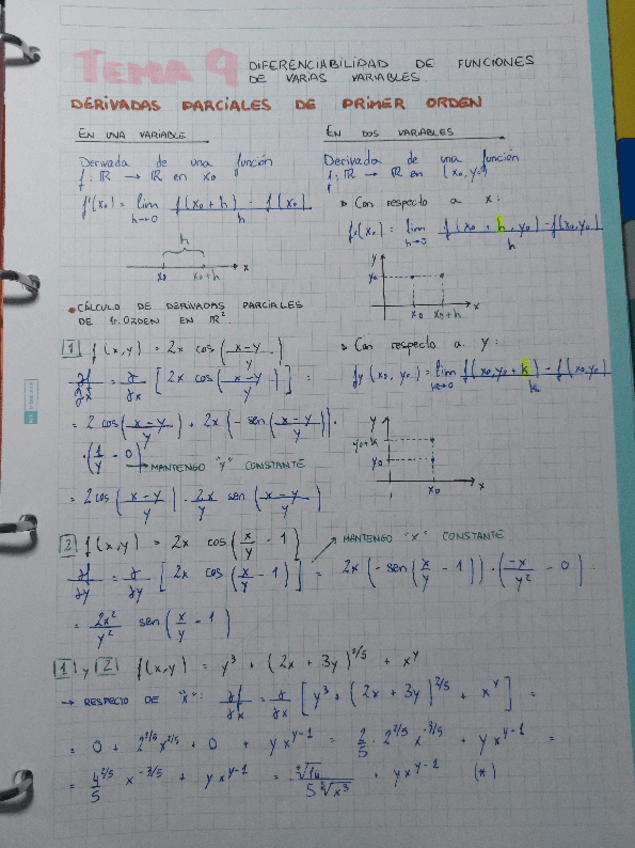 TEMA 9 DIFERENCIABILIDAD DE FUNCIONES
DE VARIAS VARIABLES.
DERIVADAS PARCIALES DE PRIMER ORDEN
EN UNA VARIABLE
Derivada de una función
f: ℝ → ℝ en x₀
f'(x₀) = lim h→0 f(x₀ + h) - f(x₀) / h
h
x₀ x₀+h x
• CÁLCULO DE DERIVADAS PARCIALES
DE 1. ORDEN EN ℝ².
EN DOS VARIABLES
Derivada de una función
f: ℝ → ℝ en (x₀, y₀)
Con respecto a x:
fx(x₀) = lim h→0 f(x₀ + h, y₀) - f(x₀, y₀) / h
y
y₀
x₀ x₀+h x
Con respecto a y:
fy (x₀, y₀) = lim k→0 f(x₀, y₀ + k) - f(x₀, y₀) / k
y
y₀+k
y₀
x₀ x
1 f(x,y) = 2x cos((x-y)/y)
∂f/∂x = ∂/∂x [2x cos((x-y)/y)] =
= 2 cos((x-y)/y) + 2x(-sen((x-y)/y)) ·
· (1/y - 0) → MANTENGO "y" CONSTANTE
= 2 cos((x-y)/y) - 2x/y sen((x-y)/y)
2 f(x,y) = 2x cos(x/y - 1) MANTENGO "x" CONSTANTE
∂f/∂y = ∂/∂y [2x cos(x/y - 1)] = 2x(-sen(x/y - 1)) · (-x/y² - 0) =
= 2x²/y² sen(x/y - 1)
1 y 2 f(x,y) = y³ + (2x + 3y)^2/5 + x^y
→ RESPECTO DE "x": ∂f/∂x = ∂/∂x [y³ + (2x + 3y)^2/5 + x^y] =
= 0 + 2^2/5 x^2/5 + 0 + y x^y-1 = 2/5 · 2^2/5 x^-3/5 + y x^y-1 =
x^-3/5 + y x^y-1 = + y x^y-1 (*)